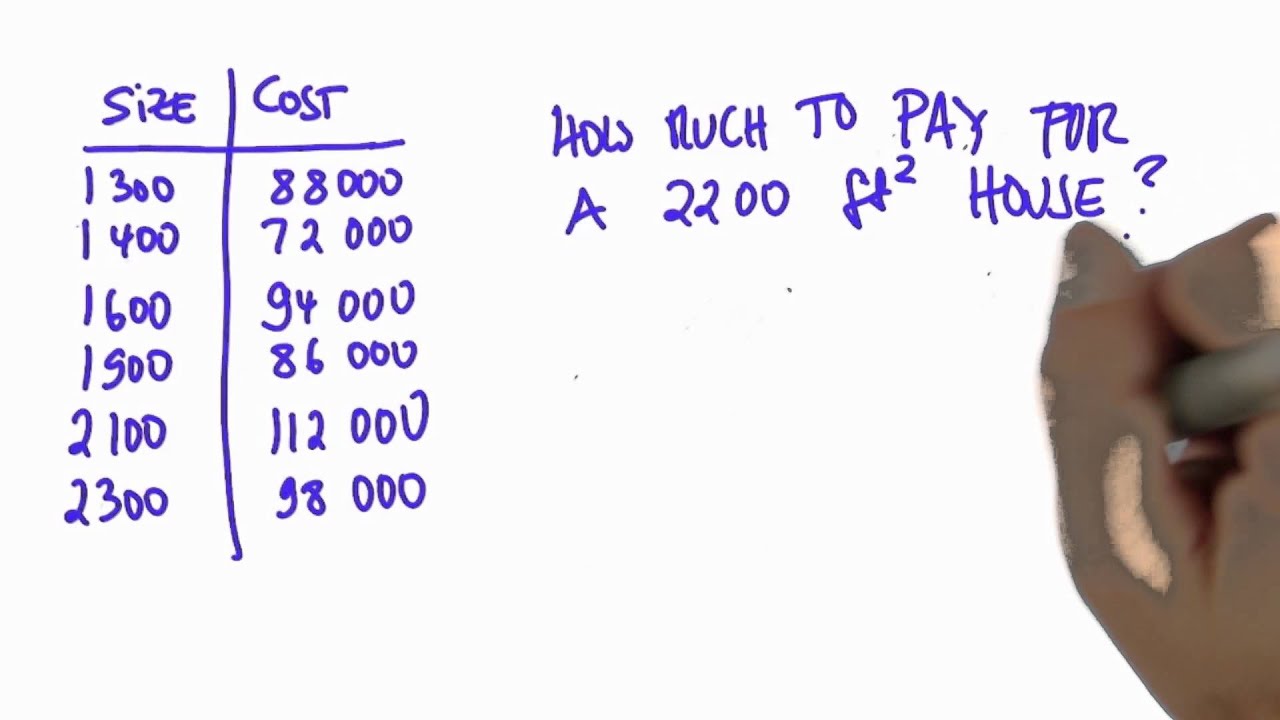 SiZE COST
1300 88000
1400 72 000
1600 94 000
1900 86 000
2100 112 000
2300 98 000
HOW MUCH TO PAY FOR
A 2200 ft² HOUSE?